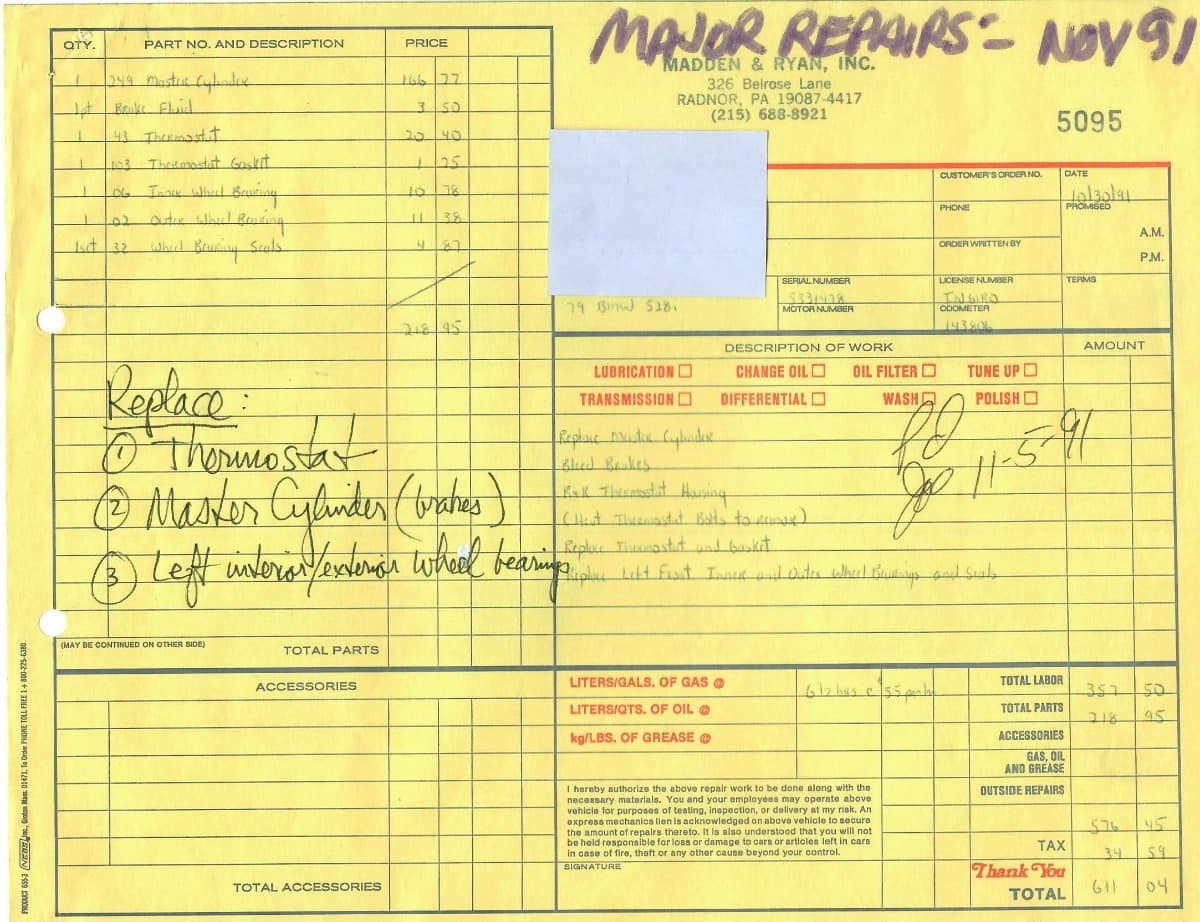 MAJOR REPAIRS:- NOV 91
MADDEN & RYAN, INC.
326 Belrose Lane
RADNOR, PA 19087-4417
(215) 688-8921
5095
QTY. PART NO. AND DESCRIPTION PRICE
1 249 Master Cylinder 166 77
1pt Brake Fluid 3 50
1 43 Thermostat 20 40
1 103 Thermostat Gasket 1 25
1 06 Inner Wheel Bearing 10 78
1 02 Outer Wheel Bearing 11 38
1set 32 Wheel Bearing Seals 4 87
218 95
Replace:
① Thermostat
② Master Cylinder (brakes)
③ Left interior/exterior wheel bearings
(MAY BE CONTINUED ON OTHER SIDE) TOTAL PARTS
ACCESSORIES
TOTAL ACCESSORIES
CUSTOMER'S ORDER NO. DATE
10/30/91
PHONE PROMISED
A.M.
ORDER WRITTEN BY
P.M.
SERIAL NUMBER LICENSE NUMBER TERMS
5331478
79 BMW 528i MOTOR NUMBER ODOMETER
143806
DESCRIPTION OF WORK AMOUNT
LUBRICATION CHANGE OIL OIL FILTER TUNE UP
TRANSMISSION DIFFERENTIAL WASH POLISH
Pd
11-5-91
Replace Master Cylinder
Bleed Brakes
R&R Thermostat Housing
(Heat Thermostat Bolts to remove)
Replace Thermostat and Gasket
Replace Left Front Inner and Outer Wheel Bearings and Seals
LITERS/GALS. OF GAS @ 6 1/2 hrs @ $55 per hr TOTAL LABOR 357 50
LITERS/QTS. OF OIL @ TOTAL PARTS 218 95
kg/LBS. OF GREASE @ ACCESSORIES
GAS, OIL
AND GREASE
OUTSIDE REPAIRS
576 45
TAX 34 59
Thank You
TOTAL 611 04
I hereby authorize the above repair work to be done along with the
necessary materials. You and your employees may operate above
vehicle for purposes of testing, inspection, or delivery at my risk. An
express mechanics lien is acknowledged on above vehicle to secure
the amount of repairs thereto. It is also understood that you will not
be held responsible for loss or damage to cars or articles left in cars
in case of fire, theft or any other cause beyond your control.
SIGNATURE
PRODUCT 655-3 NEBS Inc., Groton Mass. 01471. To Order PHONE TOLL FREE 1 + 800-225-6380